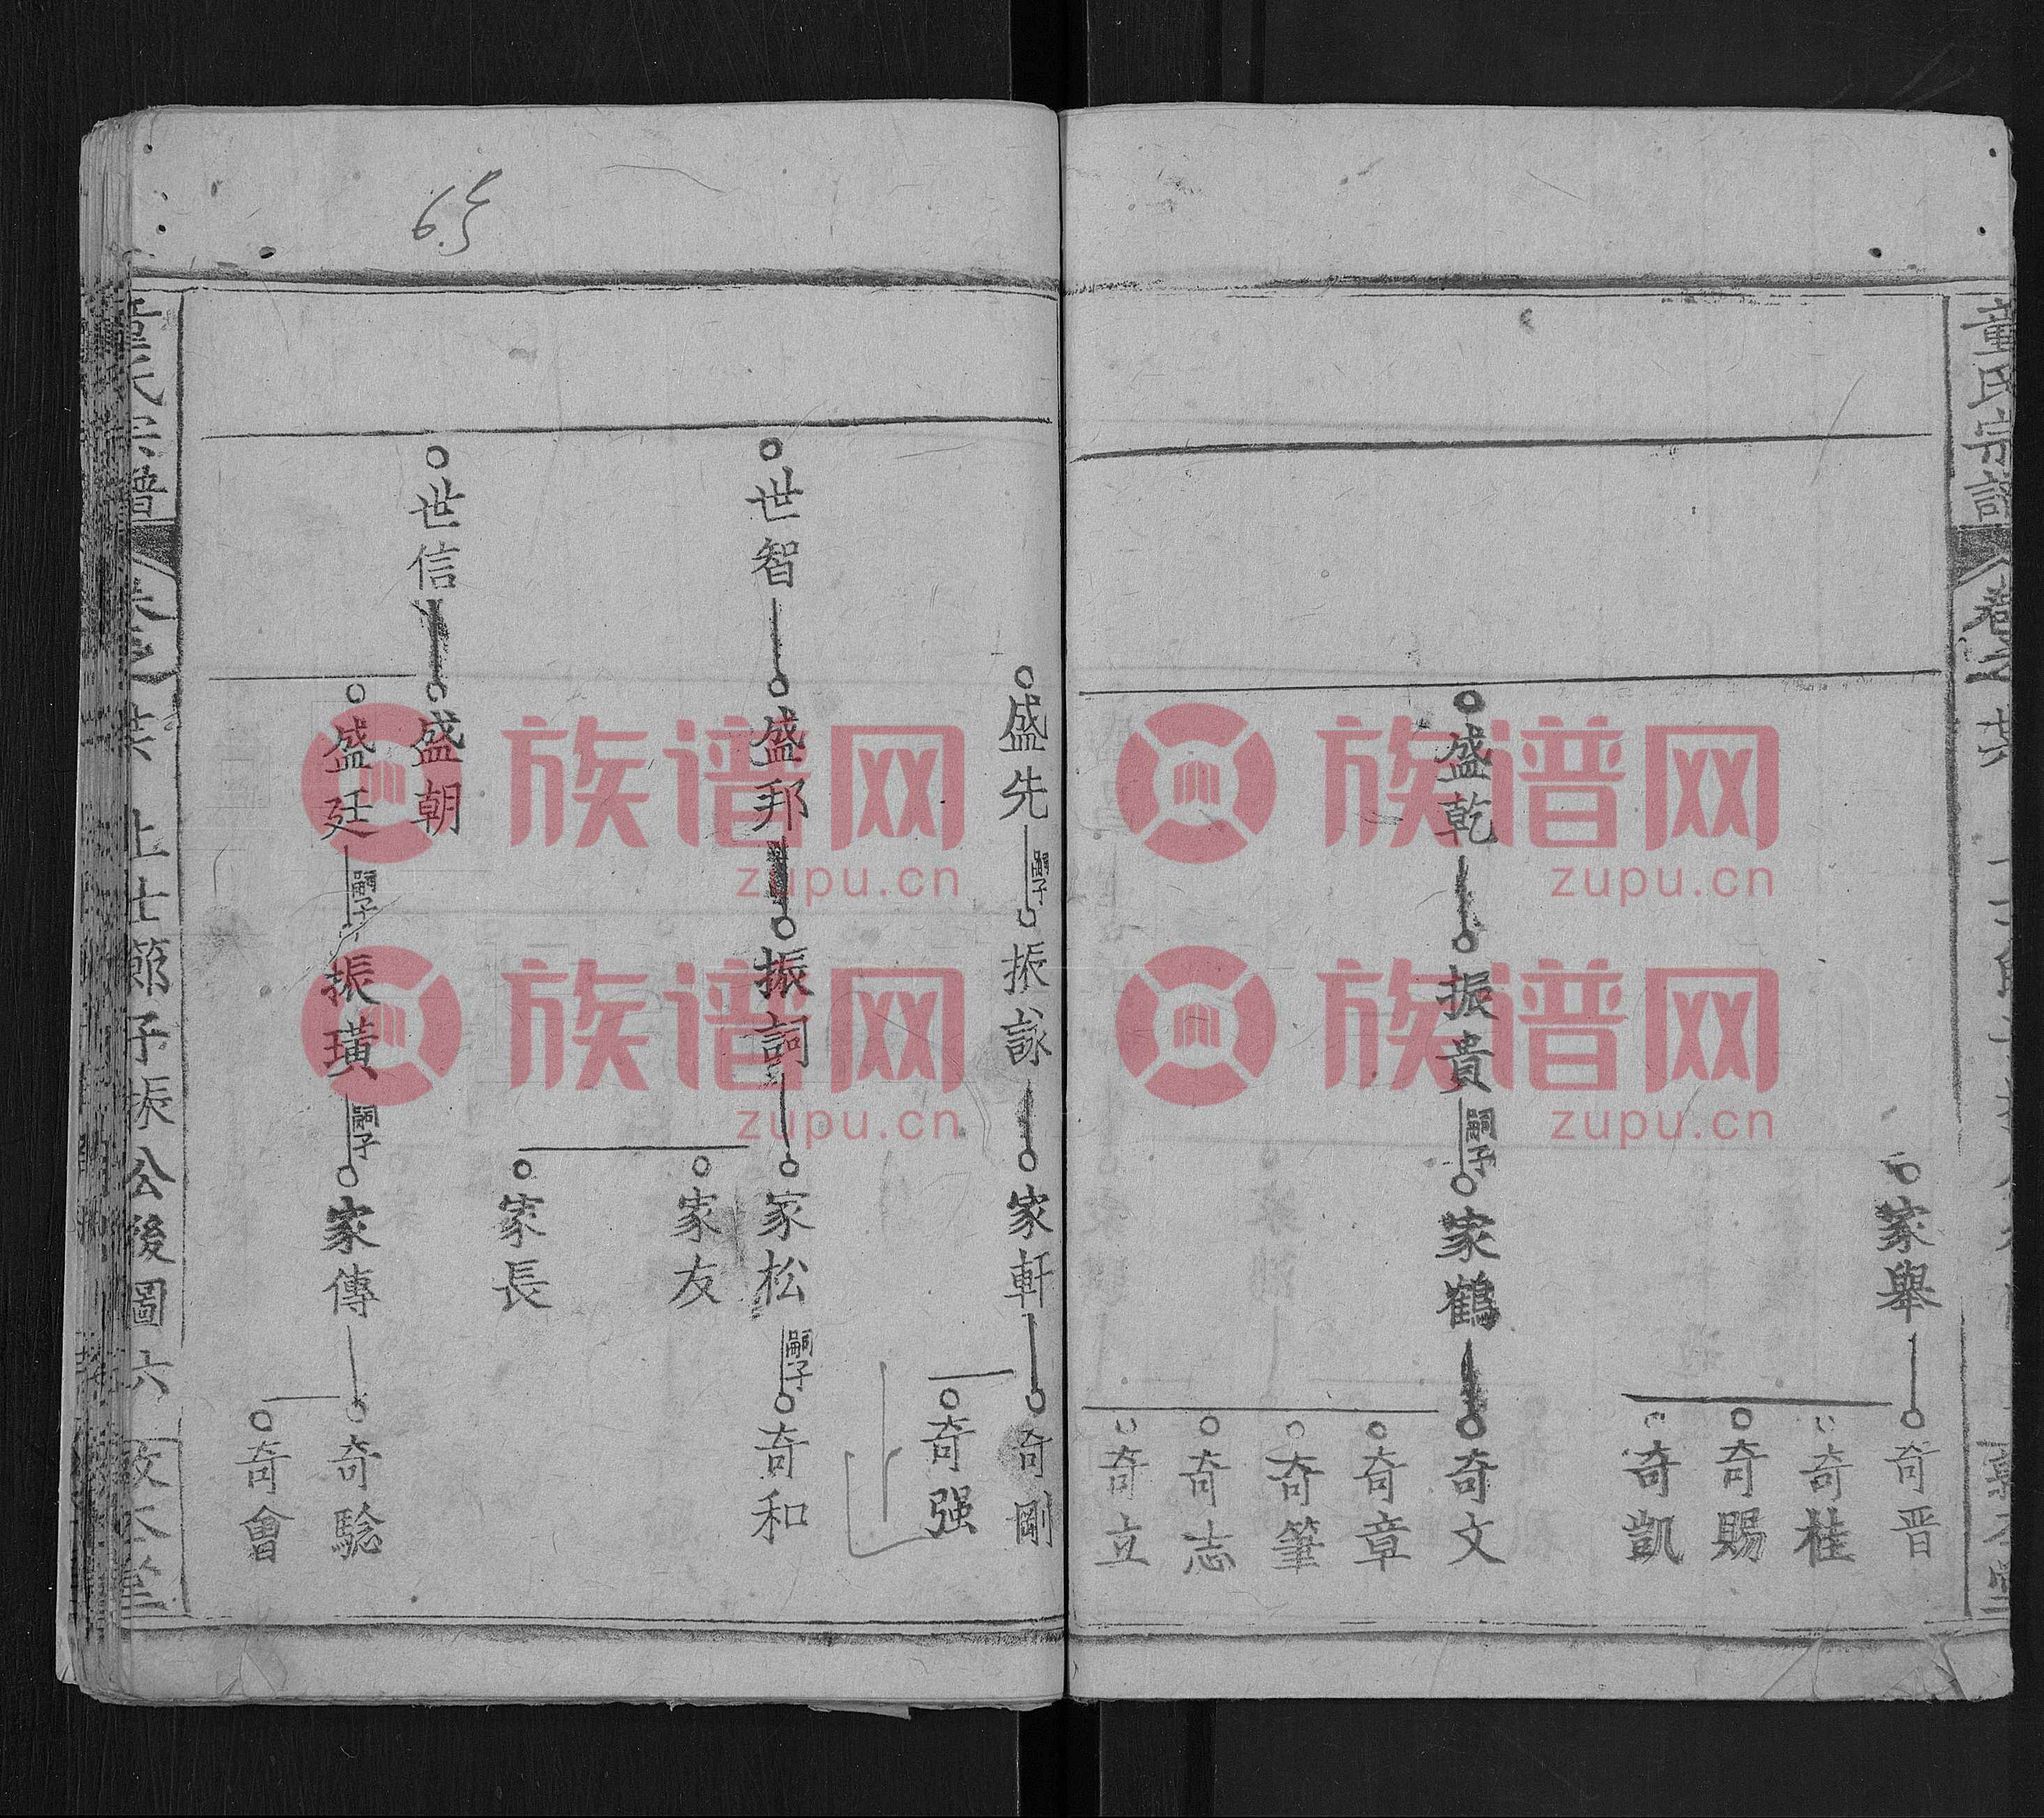 童氏宗譜
家舉
奇晋
奇桂
奇賜
奇凱
盛乾
振貴
嗣子
家鶴
奇文
奇章
奇筆
奇志
奇立
盛先
嗣子
振詠
家軒
奇剛
奇强
世智
盛邦
振詞
家松
嗣子
奇和
家友
家長
世信
盛朝
盛廷
嗣子
振璜
嗣子
家傳
奇騐
奇會
童氏宗譜
上士節子振公後圖六
65
族谱网
zupu.cn
族谱网
zupu.cn
族谱网
zupu.cn
族谱网
zupu.cn